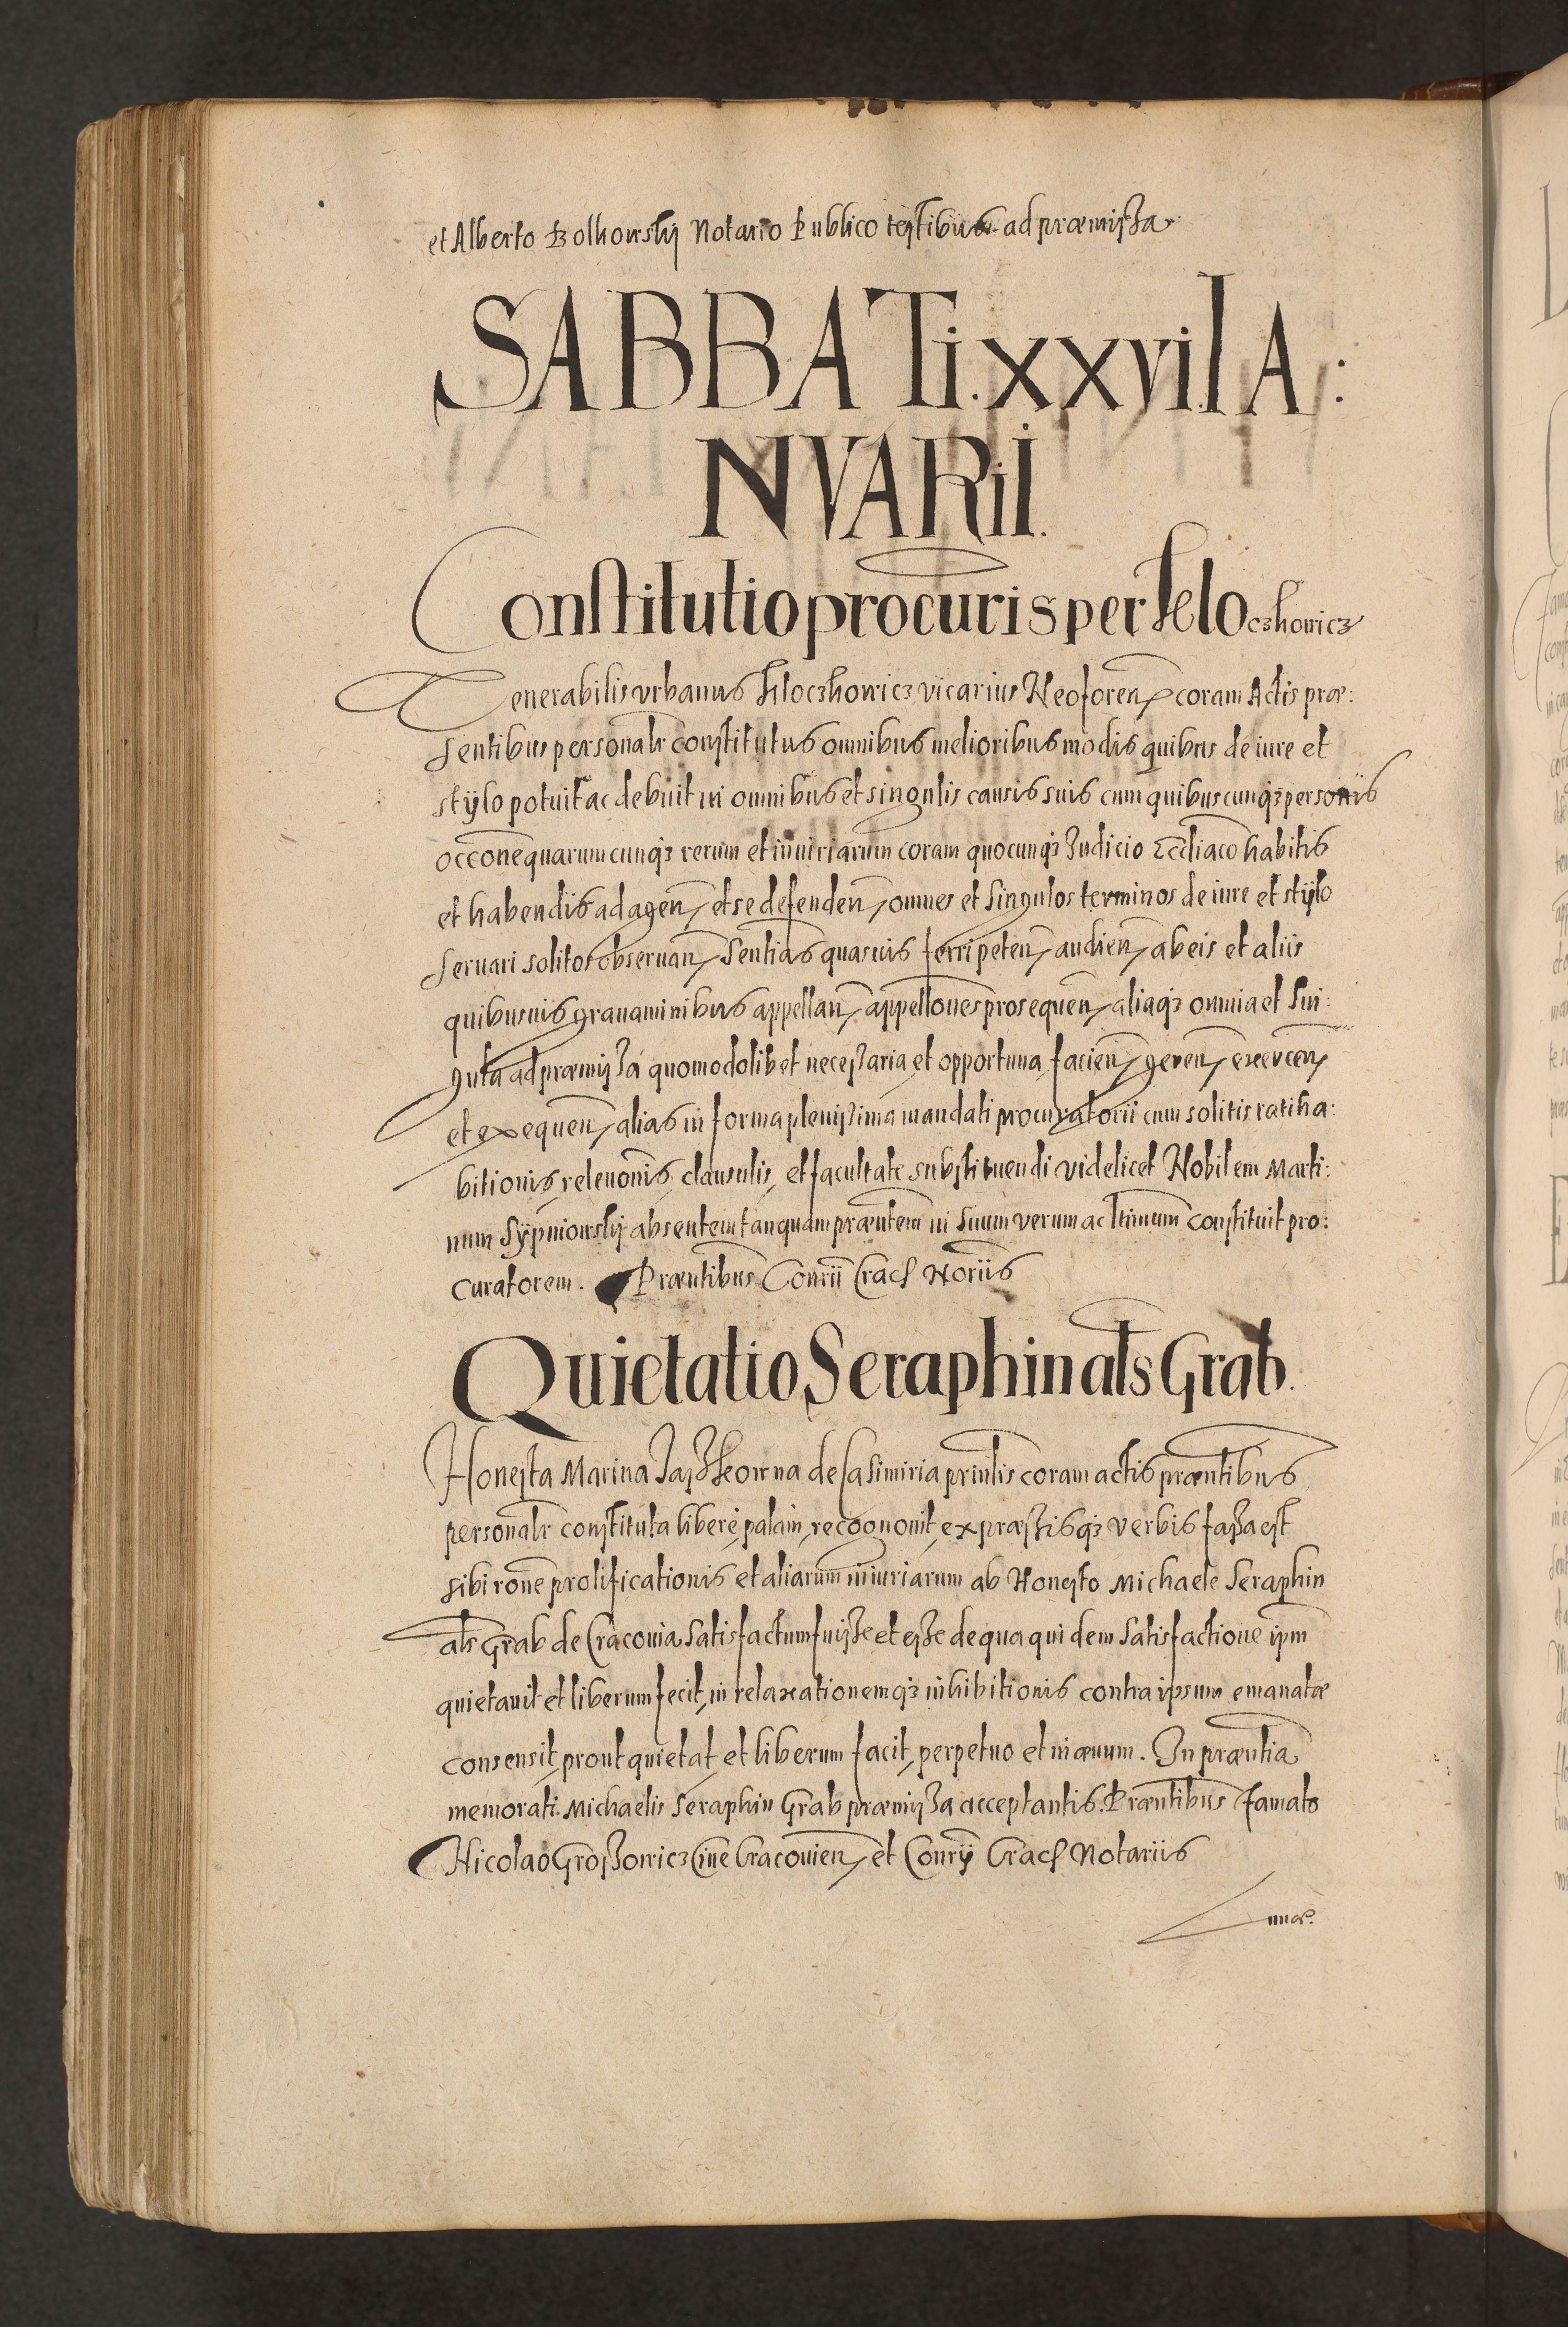 et Alberto Bolkowskij Notario Publico testibus ad præmissa
SABBATi. xxvii. IA:
NVARII.
Constitutio procuris per Klloczkowicz
Venerabilis Vrbanus Kłoczkowicz vicarius Neoforen coram Actis præ:
sentibus personalr constitutus omnibus melioribus modis quibus de iure et
stÿlo potuit ac debuit in omnibus et singulis causis suis cum quibuscunq3 personis
occone quarumcunq3 rerum et iniuriarum coram quocunq3 Iudicio Eccliaco habitis
et habendis ad agen, et se defenden, omnes et singulos terminos de iure et stÿlo
seruari solitos obseruan, Sentias quasuis ferri peten, audien, ab eis et aliis
quibusuis grauaminibus appellan, appellones prosequen, aliaq3 omnia et sin:
gula ad præmissa quomodolibet necessaria et opportuna facien, geren, exercen,
et exequen, alias in forma plenissima mandati procuratorii cum solitis ratiha:
bitionis, releuonis, clausulis, et facultate substituendi videlicet Nobilem Marti:
num Sÿpniowskij absentem tanquam præntem in suum verum ac ltimum constituit pro:
curatorem. Præntibus Conrii Crac Noriis
Quietatio Seraphin als Grab.
Honesta Marina Jaszkowna de Casimiria prinlis coram actis præntibus
personalr constituta libere, palam, recognouit, expræssisq3 verbis fassa est
sibi rone prolificationis et aliarum iniuriarum ab Honesto Michaele Seraphin
als Grab de Cracouia satisfactum fuisse et esse de qua quidem satisfactione ipm
quietauit et liberum fecit, in relaxationemq3 inhibitionis contra ipsum emanatæ
consensit, prout quietat, et liberum facit, perpetuo et in æuum. In præntia
memorati Michaelis Seraphin Grab præmissa acceptantis. Præntibus Famato
Nicolao Groszowicz Ciue Cracouien, et Conrij Crac Notariis
Lunæ.